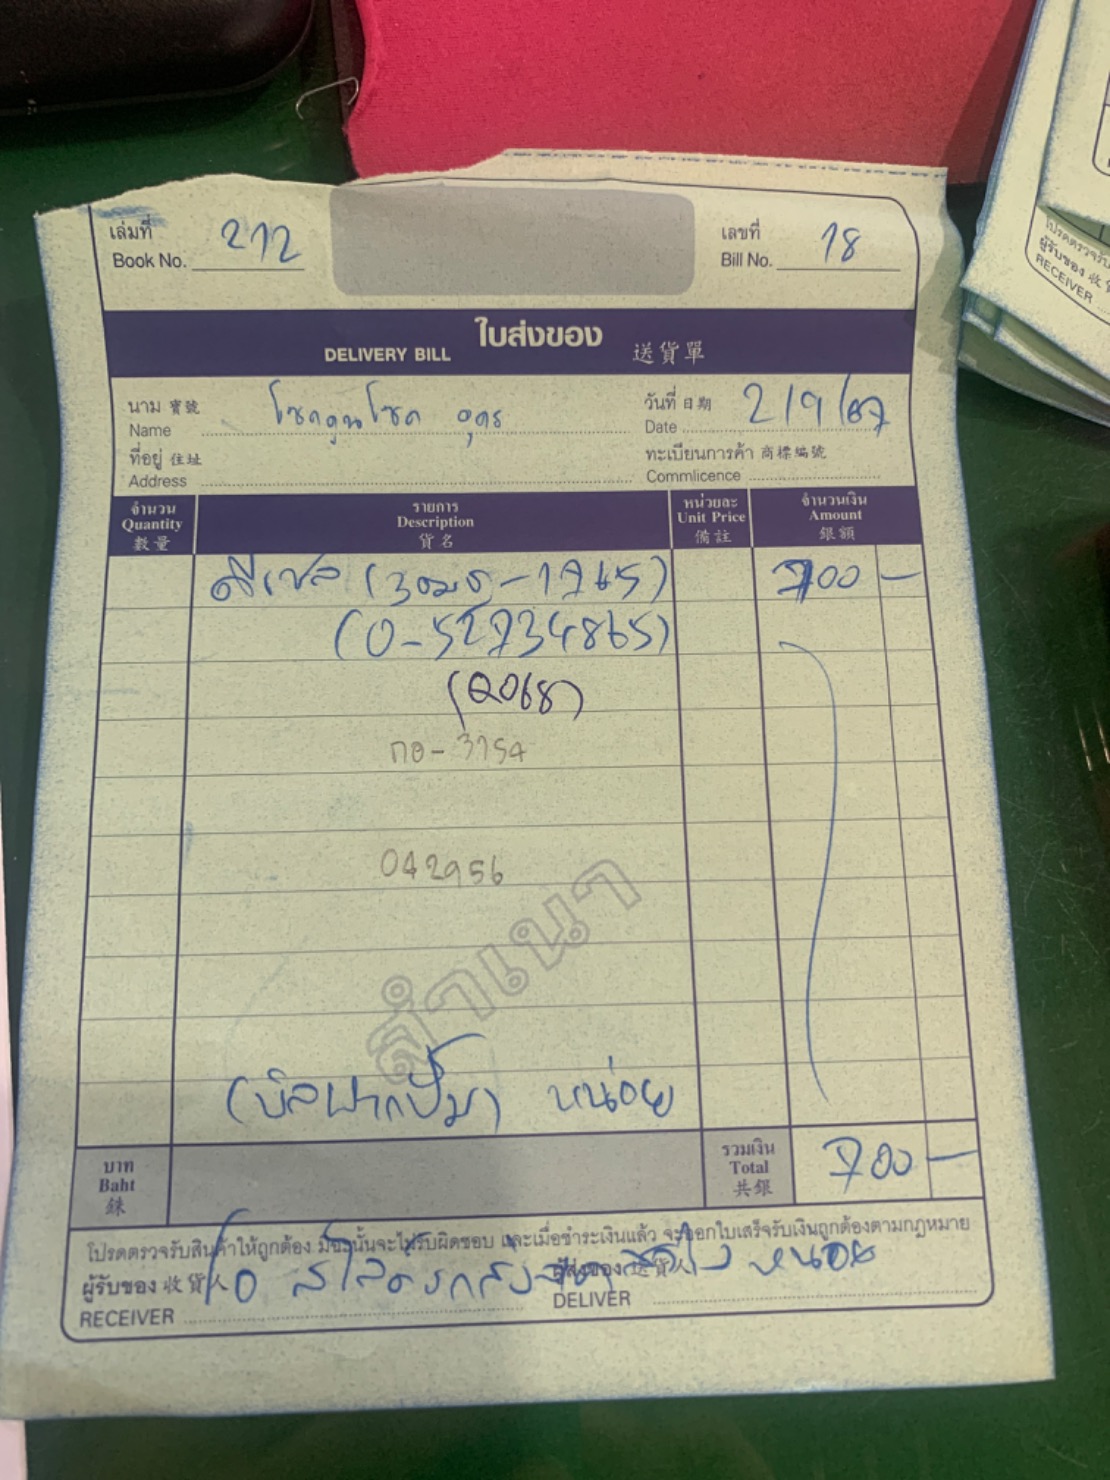 เล่มที่ 212 เลขที่ 18
Book No. Bill No.
ใบส่งของ
DELIVERY BILL 送貨單
นาม 寶號 โชคคูนโชค อุดร วันที่ 日期 2/9/67
Name Date
ที่อยู่ 住址 ทะเบียนการค้า 商標編號
Address Commlicence
จำนวน รายการ หน่วยละ จำนวนเงิน
Quantity Description Unit Price Amount
數量 貨名 備註 銀額
ดีเซล 700 –
(0-52734865)
(Q068)
กอ-3754
042956
สำเนา
(บิลฝากปั๊ม) หน่อย
บาท รวมเงิน
Baht Total 700 –
銖 共銀
โปรดตรวจรับสินค้าให้ถูกต้อง มิฉะนั้นจะไม่รับผิดชอบ และเมื่อชำระเงินแล้ว จะออกใบเสร็จรับเงินถูกต้องตามกฎหมาย
ผู้รับของ 收貨人 ผู้ส่งของ 送貨人 หน่อย
RECEIVER DELIVER
โปรดตรวจรับ
ผู้รับของ 收貨
RECEIVER